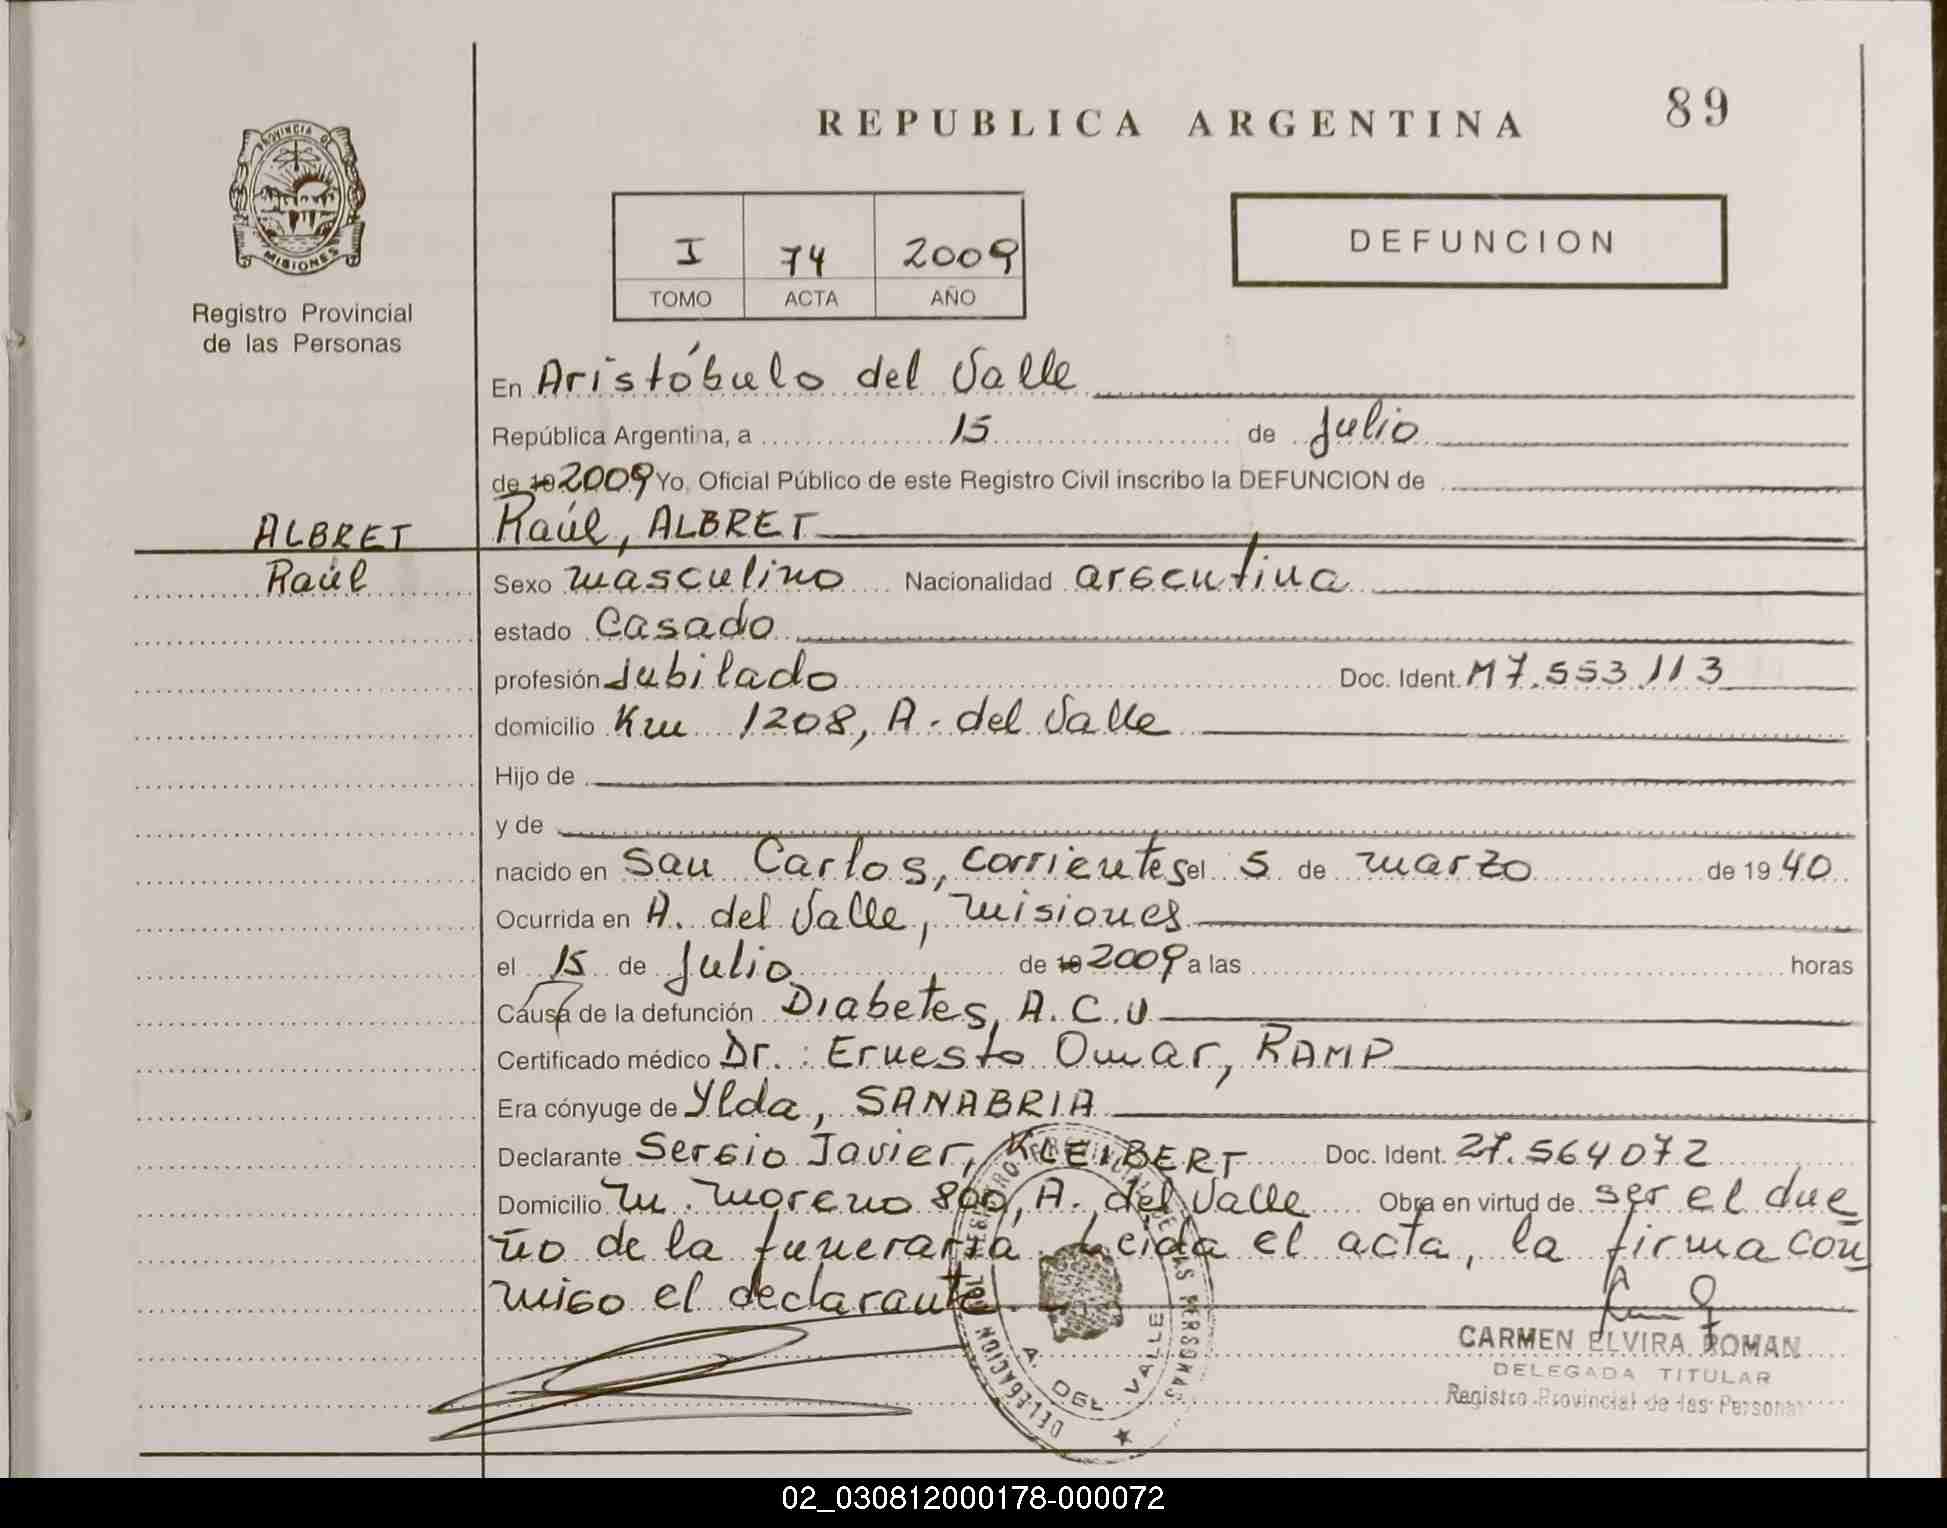 REPUBLICA ARGENTINA
89
PROVINCIA DE
MISIONES
Registro Provincial
de las Personas
I 74 2009
TOMO ACTA AÑO
DEFUNCION
En Aristóbulo del Valle
República Argentina, a 15 de Julio
de 19 2009 Yo, Oficial Público de este Registro Civil inscribo la DEFUNCION de
ALBRET
Raúl
Raúl, ALBRET
Sexo masculino Nacionalidad argentina
estado Casado
profesión Jubilado Doc. Ident. M7.553.113
domicilio Km 1208, A. del Valle
Hijo de
y de
nacido en San Carlos, Corrientes el 5 de marzo de 1940
Ocurrida en A. del Valle, misiones
el 15 de Julio de 19 2009 a las horas
Causa de la defunción Diabetes, A.C.V
Certificado médico Dr.: Ernesto Omar, RAMP
Era cónyuge de Ylda, SANABRIA
Declarante Sergio Javier, KLEIBERT Doc. Ident. 27.564072
Domicilio M. Moreno 800, A. del Valle Obra en virtud de ser el due
ño de la funeraria. Leida el acta, la firma con
migo el declarante
DELEGACION
A. DEL VALLE
CARMEN ELVIRA ROMAN
DELEGADA TITULAR
Registro Provincial de las Personas
02_030812000178-000072